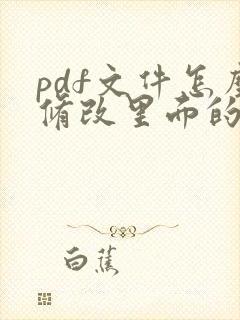 pdf文件怎
修改里面的
白蕉